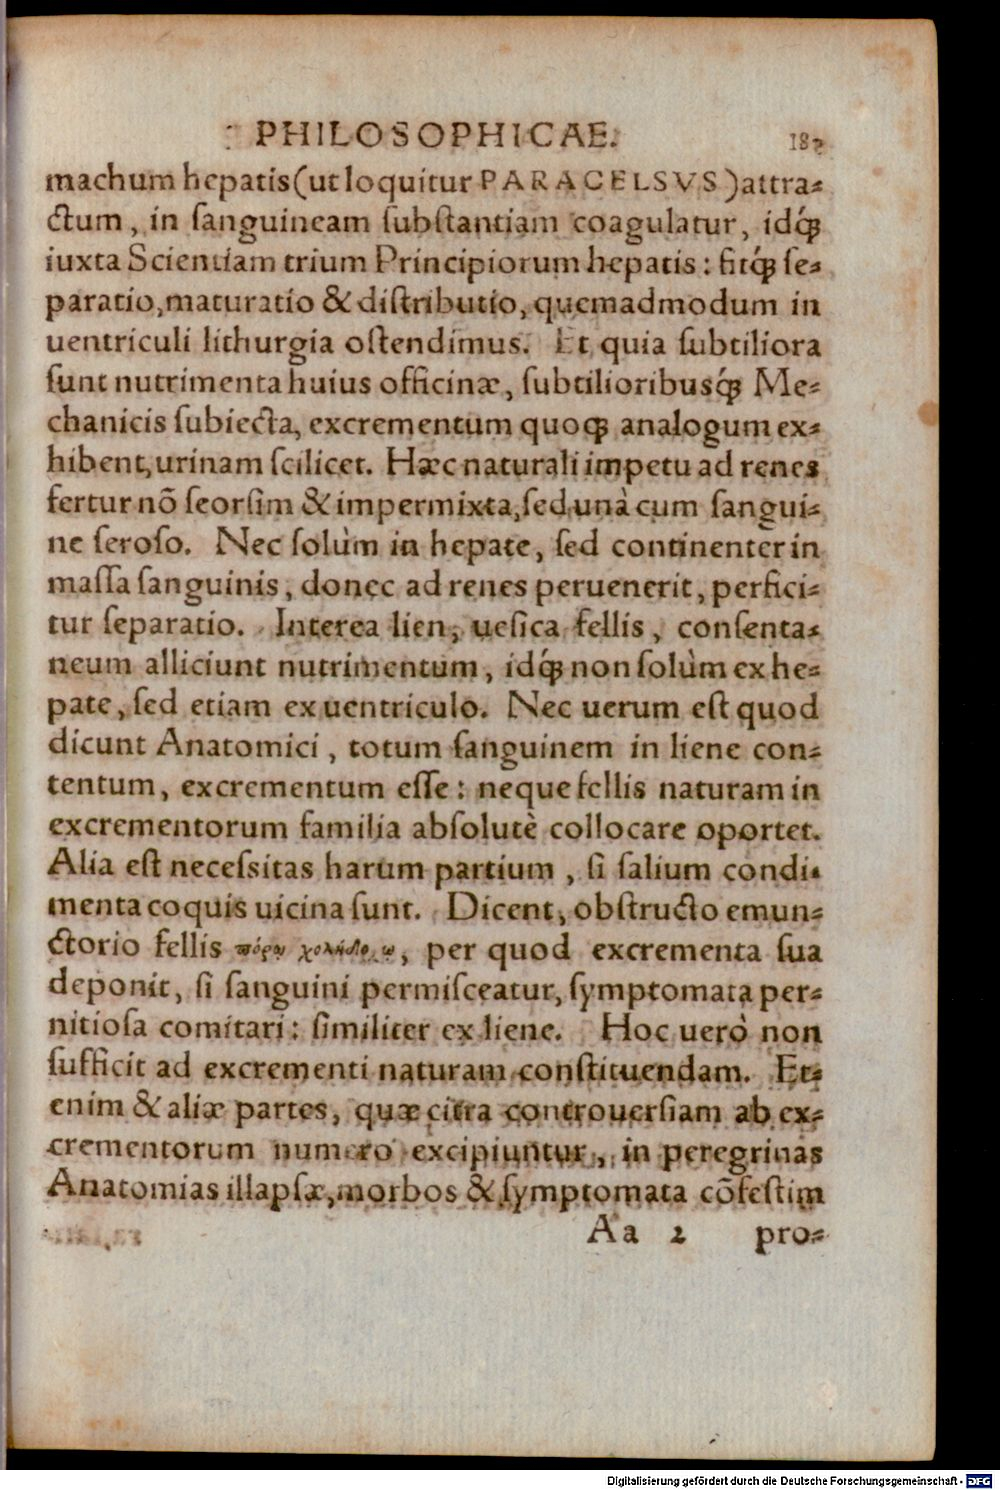 PHILOSOPHICAE.
machum hepatis (ut loquitur PARACELSVS) attra-
ctum, in sanguineam substantiam coagulatur, idq́
iuxta Scientiam trium Principiorum hepatis: fitq́ se-
paratio, maturatio & distributio, quemadmodum in
uentriculi lithurgia ostendimus. Et quia subtiliora
sunt nutrimenta huius officinæ, subtilioribusq́ Me-
chanicis subiecta, excrementum quoq analogum ex-
hibent, urinam scilicet. Hæc naturali impetu ad renes
fertur nõ seorsim & impermixta, sed unà cum sangui-
ne seroso. Nec solùm in hepate, sed continenter in
massa sanguinis, donec ad renes peruenerit, perfici-
tur separatio. Interea lien, uesica fellis, consenta-
neum alliciunt nutrimentum, idq́ non solùm ex he-
pate, sed etiam ex uentriculo. Nec uerum est quod
dicunt Anatomici, totum sanguinem in liene con-
tentum, excrementum esse: neque fellis naturam in
excrementorum familia absolutè collocare oportet.
Alia est necessitas harum partium, si salium condi-
menta coquis uicina sunt. Dicent, obstructo emun-
ctorio fellis πόρου, per quod excrementa sua
deponit, si sanguini permisceatur, symptomata per-
nitiosa comitari: similiter ex liene. Hoc uerò non
sufficit ad excrementi naturam constituendam. Et-
enim & aliæ partes, quæ citra controuersiam ab ex-
crementorum numero excipiuntur, in peregrinas
Anatomias illapsæ, morbos & symptomata cõfestim
Aa 2 pro-
Digitalisierung gefördert durch die Deutsche Forschungsgemeinschaft - DFG